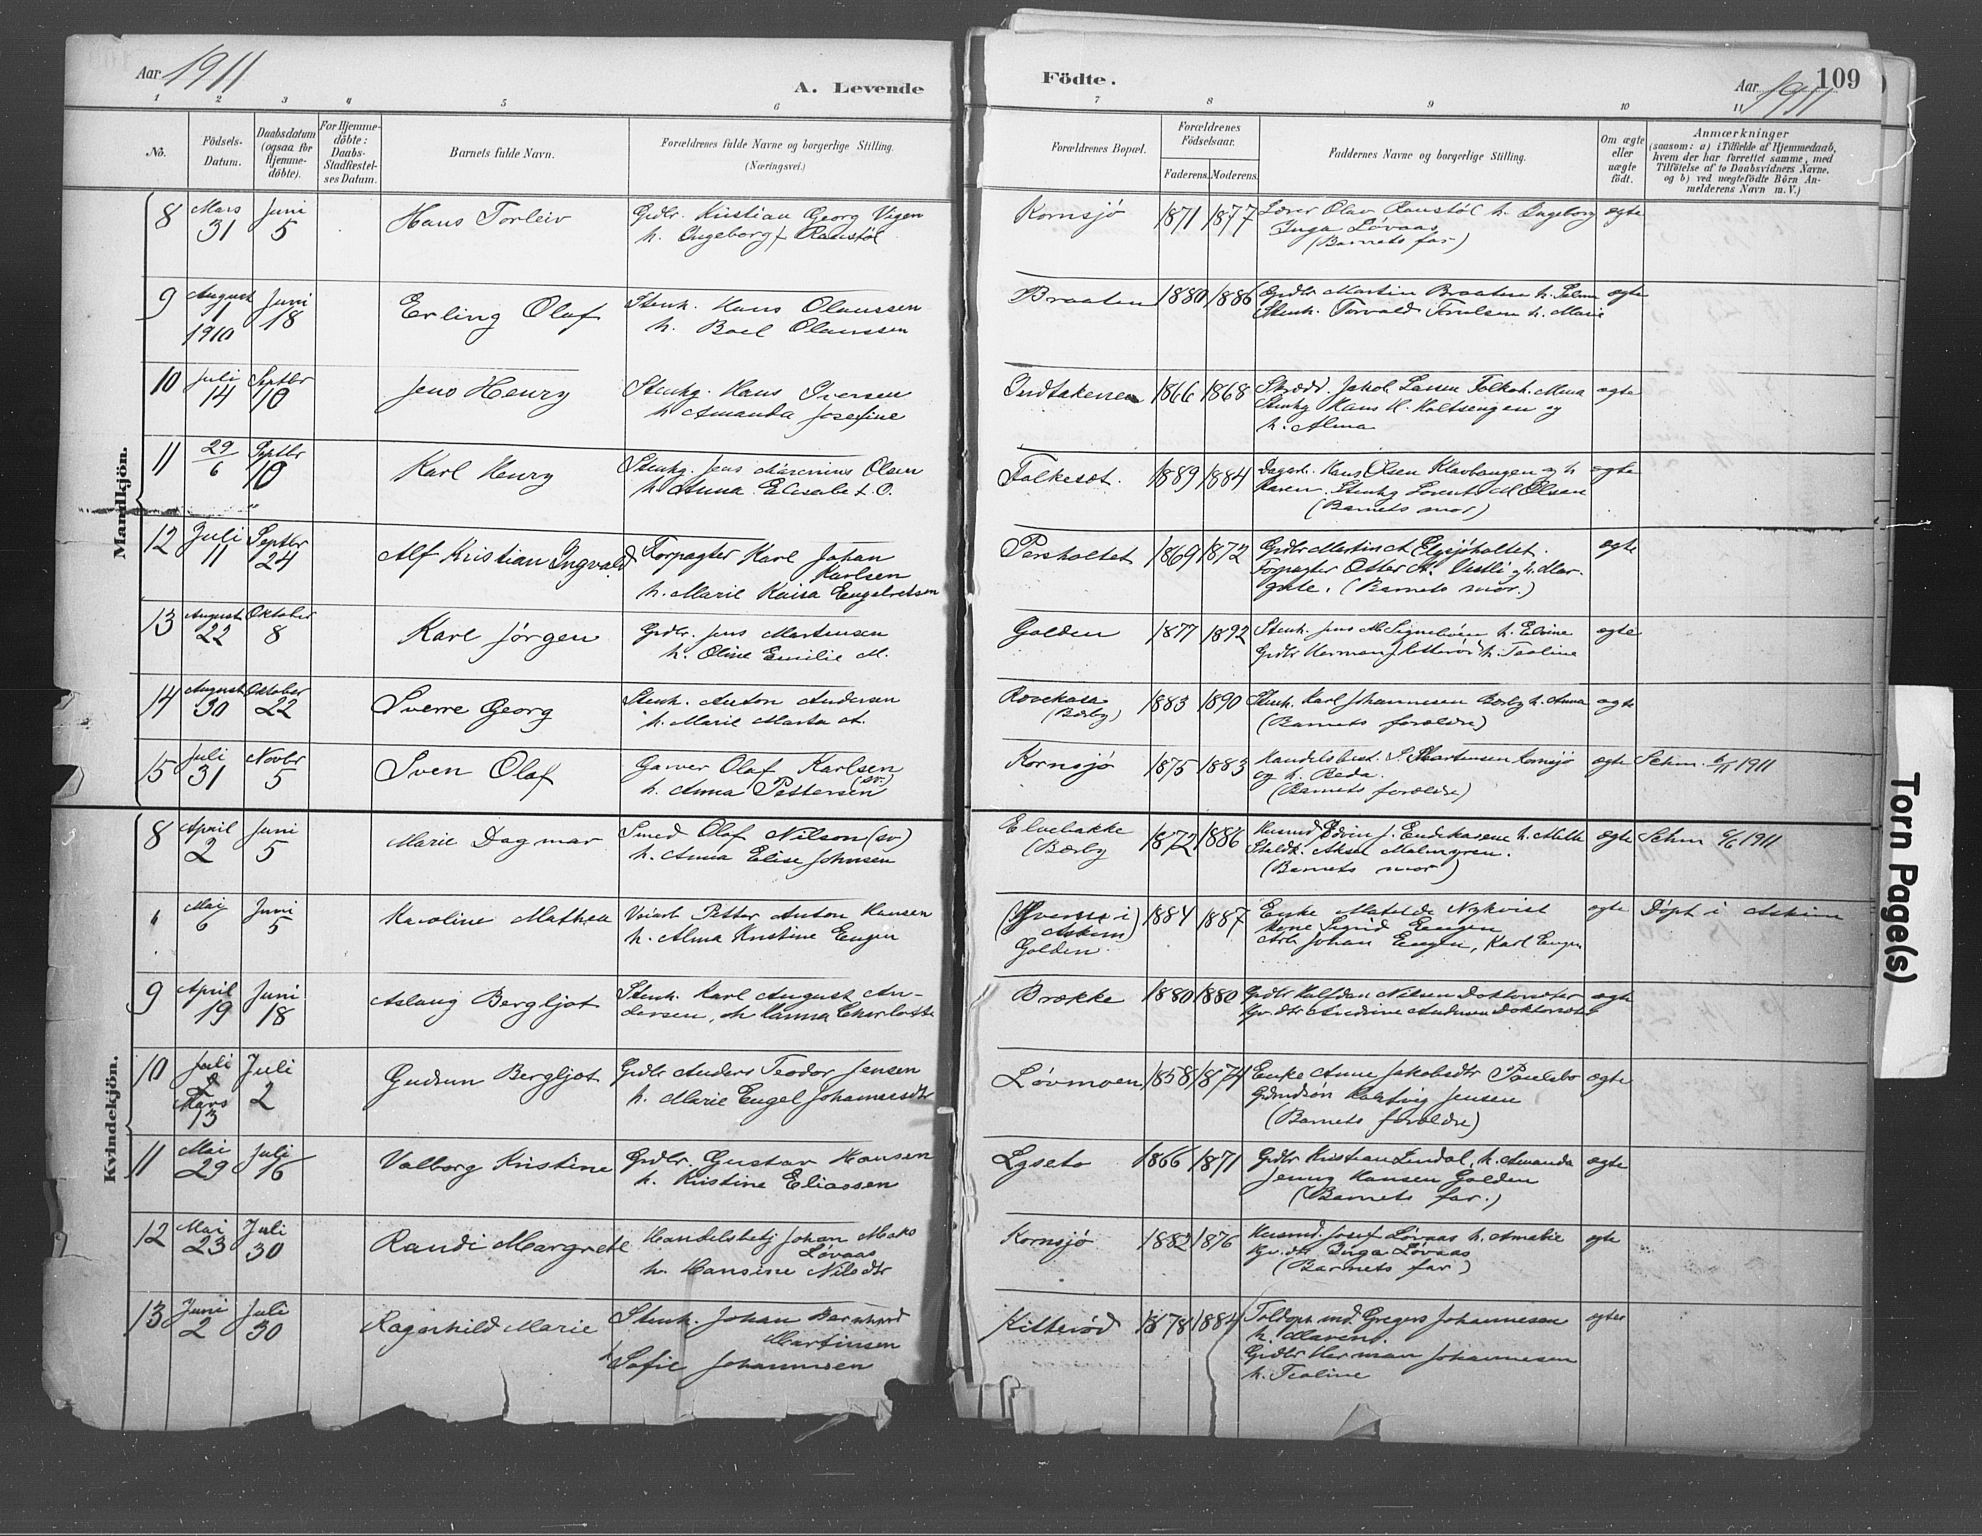 Aar 1911
A. Levende
Födte.
Aar 1911
109
1 2 3 4 5 6 7 8 9 10 11
No.
Födsels-Datum.
Daabsdatum (ogsaa for Hjemme-döbte).
For Hjemme-döbte: Daabs-Stadfestel-ses Datum.
Barnets fulde Navn.
Forældrenes fulde Navne og borgerlige Stilling.
(Næringsvei.)
Forældrenes Bopæl.
Forældrenes Födselsaar.
Faderens. Moderens.
Faddernes Navne og borgerlige Stilling.
Om ægte eller uægte födt.
Anmærkninger
(saasom: a) i Tilfælde af Hjemmedaab, hvem der har forrettet samme, med Tilföielse af to Daabsvidners Navne, og b) ved uægtefödte Börn An-melderens Navn m. V.)
Mandkjön.
8 Mars 31 Juni 5 Hans Torleiv Grdbr. Kristian Georg Vigen
h. Ingeborg f. Ranstøl
Kornsjø 1871 1877 Lærer Olav Ranstøl h. Ingeborg ægte
Inga Løvaas
(Barnets far)
9 August 31 1910 Juni 18 Erling Olaf Stenh. Hans Olaussen
h. Boel Olaussen
Braaten 1880 1886 Grdbr Martin Braaten h. ægte
Stenh. Torvald h. Marie
10 Juli 14 Septbr 10 Jens Henry Stenhg. Hans Iversen
h Amanda Josefine
1866 1868 Jakob Larsen ægte
Stenhg Hans H. Holtsengen og
h. Alma
11 29/6 Septbr 10 Karl Henry Stenhg. Jens Marenius Olsen
h. Anna Elisabet O.
Folkesæt. 1889 1884 Hans Olsen og h ægte
Karen. Stenhg Lorents M Olsen
(Barnets mor)
12 Juli 11 Septbr 24 Alf Kristian Ingvald Forpagter Karl Johan
Karlsen
h. Marie Kaisa Engebretsen
Persholtet 1869 1872 Grdbr Martin A Elgsjøholtet. ægte
Forpagter Otter A. Vestli og h. Mar-
grete. (Barnets mor.)
13 August 22 Oktober 8 Karl Jørgen Grdbr. Jens Martensen
h. Oline Emilie M.
Golden 1877 1892 Stenh. Jens M h. Elvine ægte
Grdbr Herman J Kitterød h. Teoline
14 August 30 Oktober 22 Sverre Georg Stenh. Anton Andersen
h. Marie Marta A.
Rovekasa
(Bærby) 1883 1890 Stenh. Karl Johannesen Bærby h. Anna ægte
(Barnets forældre)
15 Juli 31 Novbr 5 Sven Olaf Garver Olaf Karlsen
h. Anna Pettersen (sv.)
Kornsjø 1875 1883 Handelsbest. S. Martinsen Kornsjø ægte
og h. Beda.
(Barnets forældre)
6/11 1911
Kvindekjön.
8 April 2 Juni 5 Marie Dagmar Smed Olaf Nilson (sv)
h. Anna Elise Johnsen
Elvebakke
(Bærby 1872 1886 Husmd Edvin J. h. Milli ægte
Aksel Malmgren.
(Barnets mor)
6/6 1911
Mai 6 Juni 5 Karoline Mathea Petter Anton Hansen
h. Alma Kristine Engen
i
Askim)
Golden 1884 1887 Enke Matilde Nykvist ægte
Kone Sigrid Engen
Arb Johan Engen, Karl Engen
Døpt i Askim
9 April 19 Juni 18 Aslaug Bergljot Stenh. Karl August An-
dersen, h. Hanna Charlotte
Brække 1880 1880 Grdbr Halfdan Nilsen ægte
Andrine Andersen
10 Juli 2 Mars 13 Juli 2 Gudrun Bergljot Grdbr Anders Teodor Jensen
h. Marie Engel Johannesdtr
Løvmoen 1858 1874 Enke Anne Jakobsdtr Paulsbo ægte
Grdmdsøn Jensen
(Barnets forældre)
11 Mai 29 Juli 16 Valborg Kristine Grdbr. Gustav Hansen
h. Kristine Eliassen
Lyseto 1866 1871 Grdbr Kristian Lindal, h. Amanda ægte
Jenny Hansen Golden
(Barnets far.)
12 Mai 23 Juli 30 Randi Margrete Handelsbetj Johan Maks
Løvaas
h. Hansine Nilsdtr
Kornsjø 1882 1876 Husmd. Josef Løvaas h. Amalie ægte
Inga Løvaas
(Barnets far)
13 Juni 2 Juli 30 Ragnhild Marie Stenh. Johan Bernhard
Martinsen
h Sofie Johannesen
Kitterød 1878 1884 Toldopsmd. Gregers Johannesen
h. Maren.
Grdbr Herman Johannesen
h. Teoline
Torn Page(s)